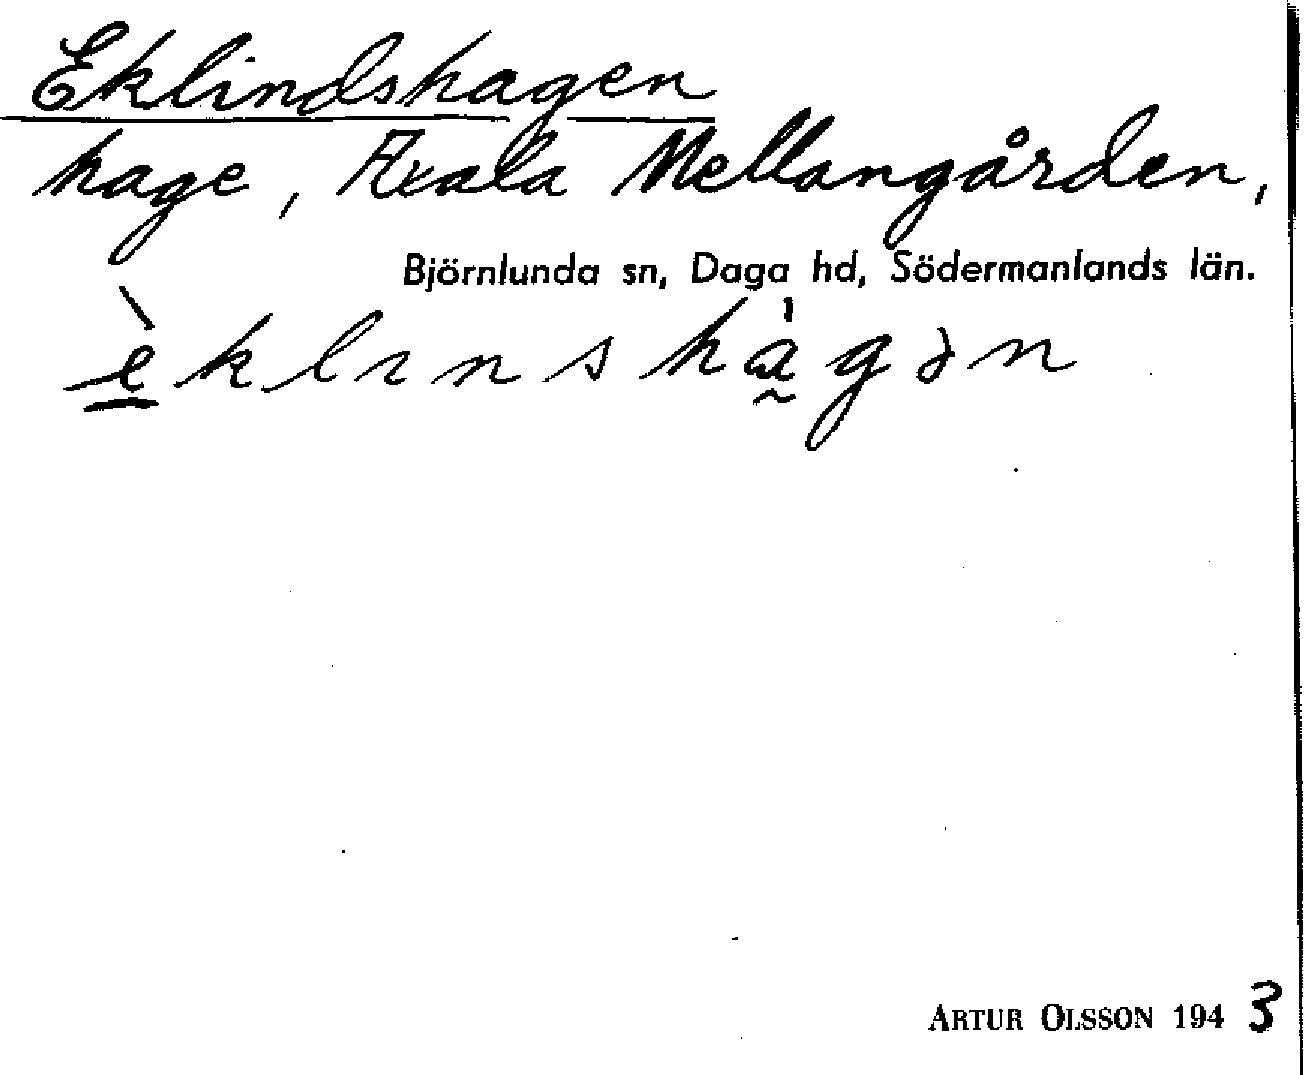 Eklindshagen
hage, Axala Mellangården,
Björnlunda sn, Daga hd, Södermanlands län.
èklınshàgən
ARTUR OLSSON 1943